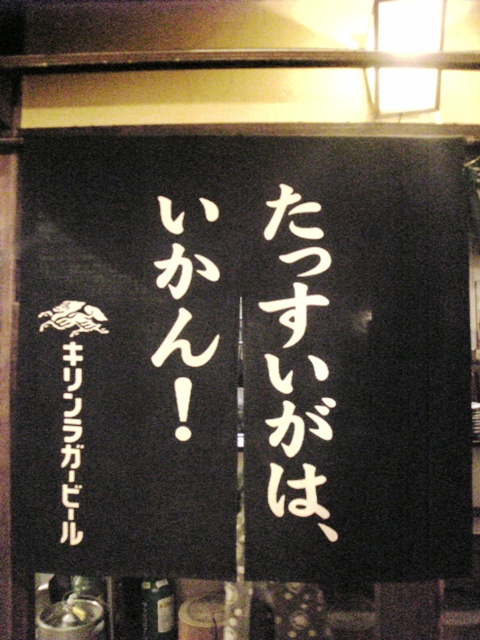 たっすいがは、
いかん!
キリンラガービール